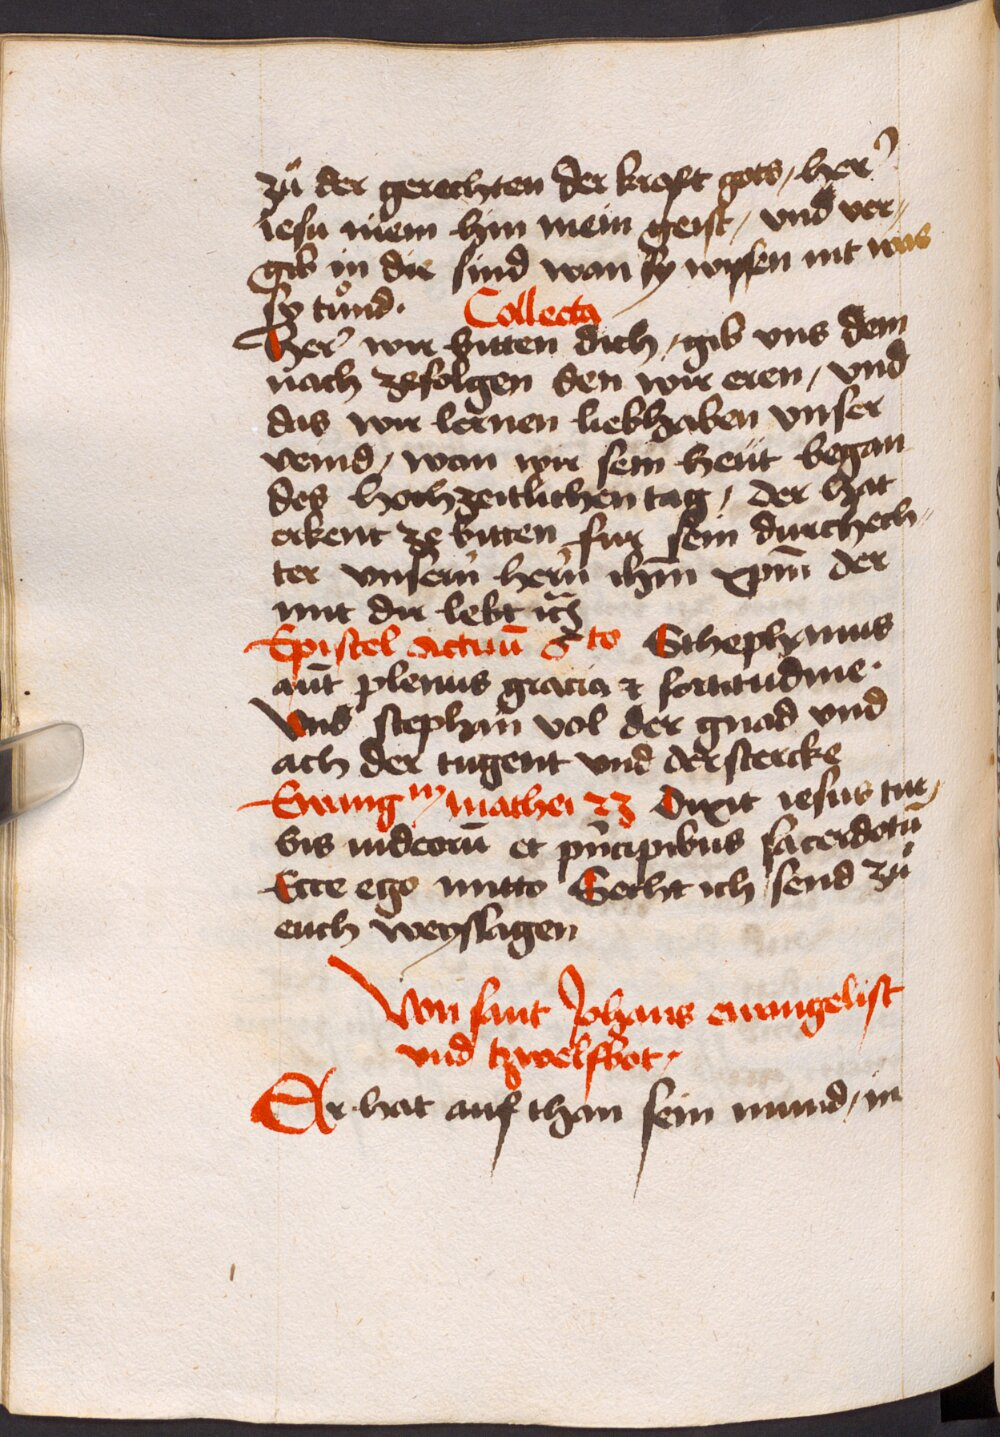 zů der gerechten der kraft gots / her
iesu niem hin mein geist / vnd ver„
gib in die sind wan sy wyssen nit was
sy tůnd · Collecta
Her wir bitten dich / gib vns dem
nach zefolgen den wir eren / vnd
das wir lernen liebhaben vnser
veind / wan wir sein heüt began
des hochzeitlichen tag / der hat
erkent ze bitten fur sein durchech„
ter vnsern̄ hern̄ ih̄m xp̄m der
mit dir lebt ꝛc̄
Epistel actuū 6to Sthephanus
aūt plenus gracia ⁊ fortitudine ·
Vnd stephan vol der gnad vnd
ach der tugent vnd der stercke
Ewang m̄ mathei 23 Dixit iesus tur„
bis iudeorū et pn̄cipibus sacerdotū
Ecce ego mitto Secht ich send zů
euch weyssagen
Von sant Johans ewangelist
vnd tzwelfbot ·
Er hat auf than sein mund / in